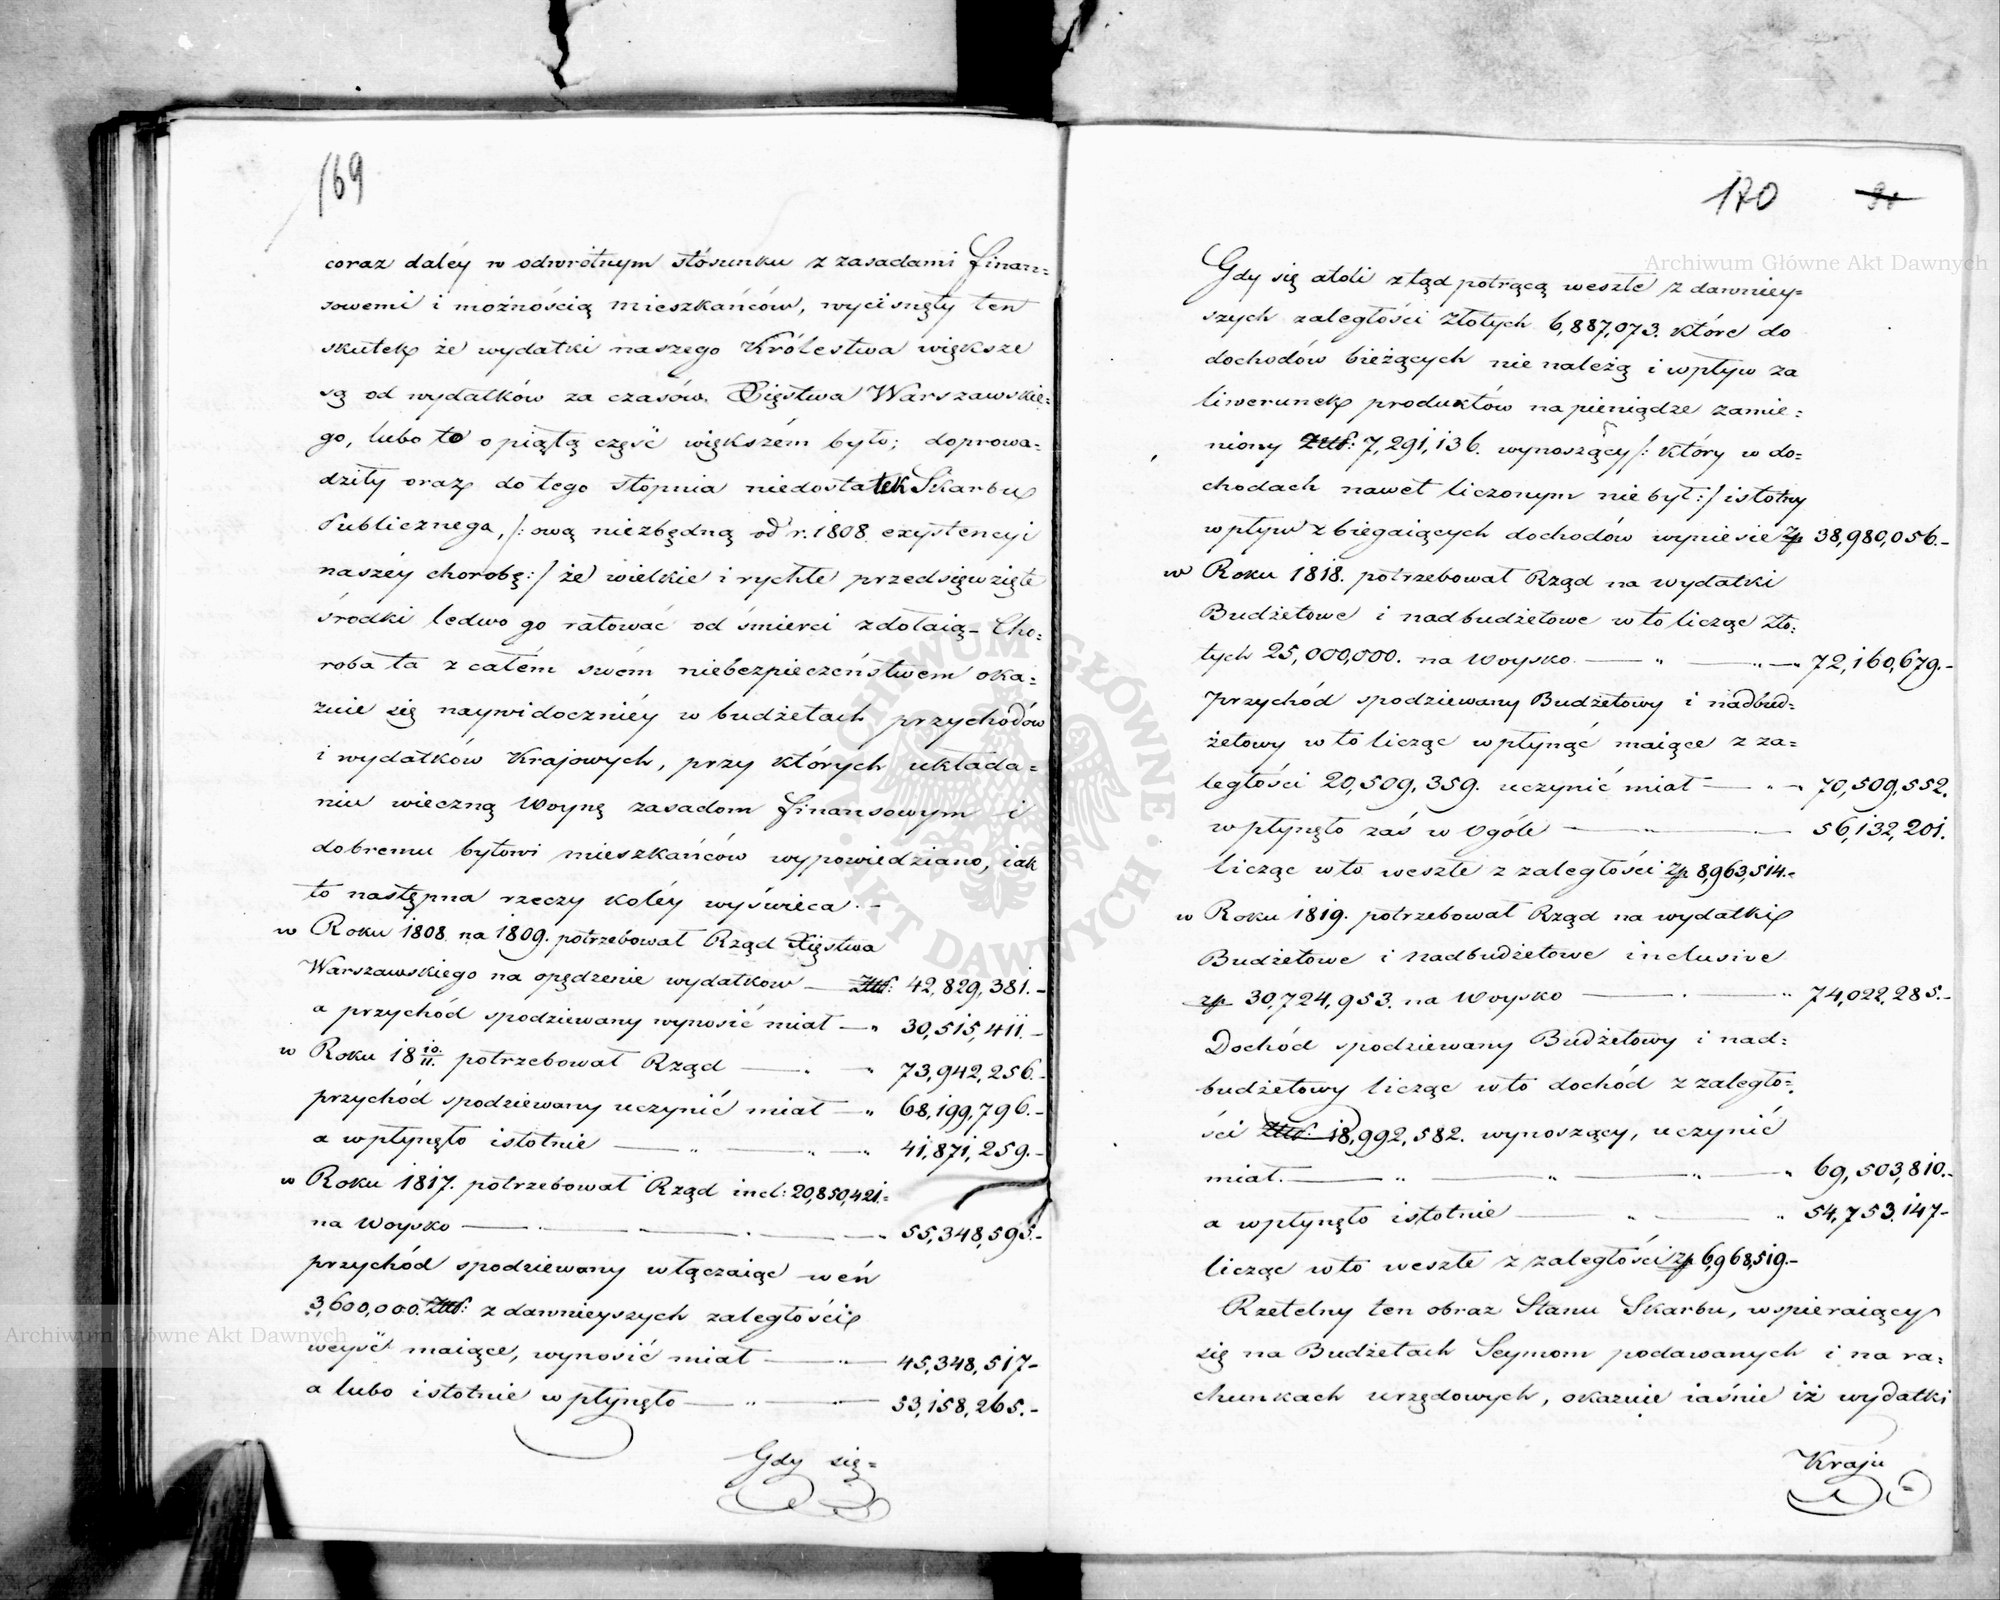 169
coraz daléy w odwrotnym stósunku z zasadami finan=
sowemi i możnością mieszkańców, wycisnęły ten
skutek że wydatki naszego Królestwa większe
są od wydatków za czasów Xięstwa Warszawskie=
go, lubo to o piątą część większém było; doprowa=
dziły oraz do tego stopnia niedostatek Skarbu
Publicznego, /: ową niezbędną od r. 1808. exystencyi
naszéy chorobę :/ że wielkie i rychłe przedsięwzięte
środki ledwo go ratować od śmierci zdołaią - Cho=
roba ta z całém swém niebezpieczeństwem oka=
zuie się naywidoczniéy w budżetach przychodów
i wydatków Krajowych, przy których układa=
niu wieczną Woynę zasadom finansowym i
dobremu bytowi mieszkańców wypowiedziano, iak
to następna rzeczy koléy wyświeca. -
w Roku 1808. na 1809. potrzebował Rząd Xięstwa
Warszawskiego na opędzenie wydatkow — Złtł: 42,829,381.-
a przychód spodziewany wynosić miał — " 30,515,411.-
w Roku 18 10/11. potrzebował Rząd — " — " 73,942,256.-
przychód spodziewany uczynić miał — " 68,199,796.-
a wpłynęło istotnie — " — " — " 41,871,259.-
w Roku 1817. potrzebował Rząd incl: 20,850,421.=
na Woysko — " — " — " 55,348,595.-
przychód spodziewany włączaiąc weń
3,600,000. Złtł: z dawnieyszych zaległości
weyść maiące, wynosić miał — " — 45,348,517-
a lubo istotnie wpłynęło — " — 53,158,265.-
Gdy się=
170
Gdy się atoli ztąd potrącą weszłe z dawniey=
szych zaległości Złotych 6,887,073. które do
dochodów bieżących nie należą i wpływ za
liwerunek produktów na pieniądze zamie=
niony Złtł: 7,291,136. wynoszący /: który w do=
chodach nawet liczonym nie był :/ istotny
wpływ z biegaiących dochodów wyniesie zp 38,980,056.-
w Roku 1818. potrzebował Rząd na wydatki
Budżetowe i nadbudżetowe w to licząc Zło=
tych 25,000,000. na Woysko — " — " — 72,160,679.-
przychód spodziewany Budżetowy i nadbud=
żetowy w to licząc wpłynąć maiące z za=
ległości 20,509,359. uczynić miał — " — 70,509,552.
wpłynęło zaś w Ogóle — " — 56,132,201.
licząc w to weszłe z zaległości zp 8,963,514.-
w Roku 1819. potrzebował Rząd na wydatki
Budżetowe i nadbudżetowe inclusive
zp 30,724,953. na Woysko — " — " 74,022,285.-
Dochód spodziewany Budżetowy i nad=
budżetowy licząc w to dochód z zaległo=
ści Złtł: 18,992,582. wynoszący, uczynić
miał. — " — " — " — " 69,503,810.-
a wpłynęło istotnie — " — " 54,753,147-
licząc w to weszłe z zaległości zp 6,968,519.-
Rzetelny ten obraz Stanu Skarbu, wspieraiący
się na Budżetach Seymom podawanych i na ra=
chunkach urzędowych, okazuie iaśnie iż wydatki
Kraju
Archiwum Główne Akt Dawnych
Archiwum Główne Akt Dawnych
ARCHIWUM GŁÓWNE · AKT DAWNYCH ·